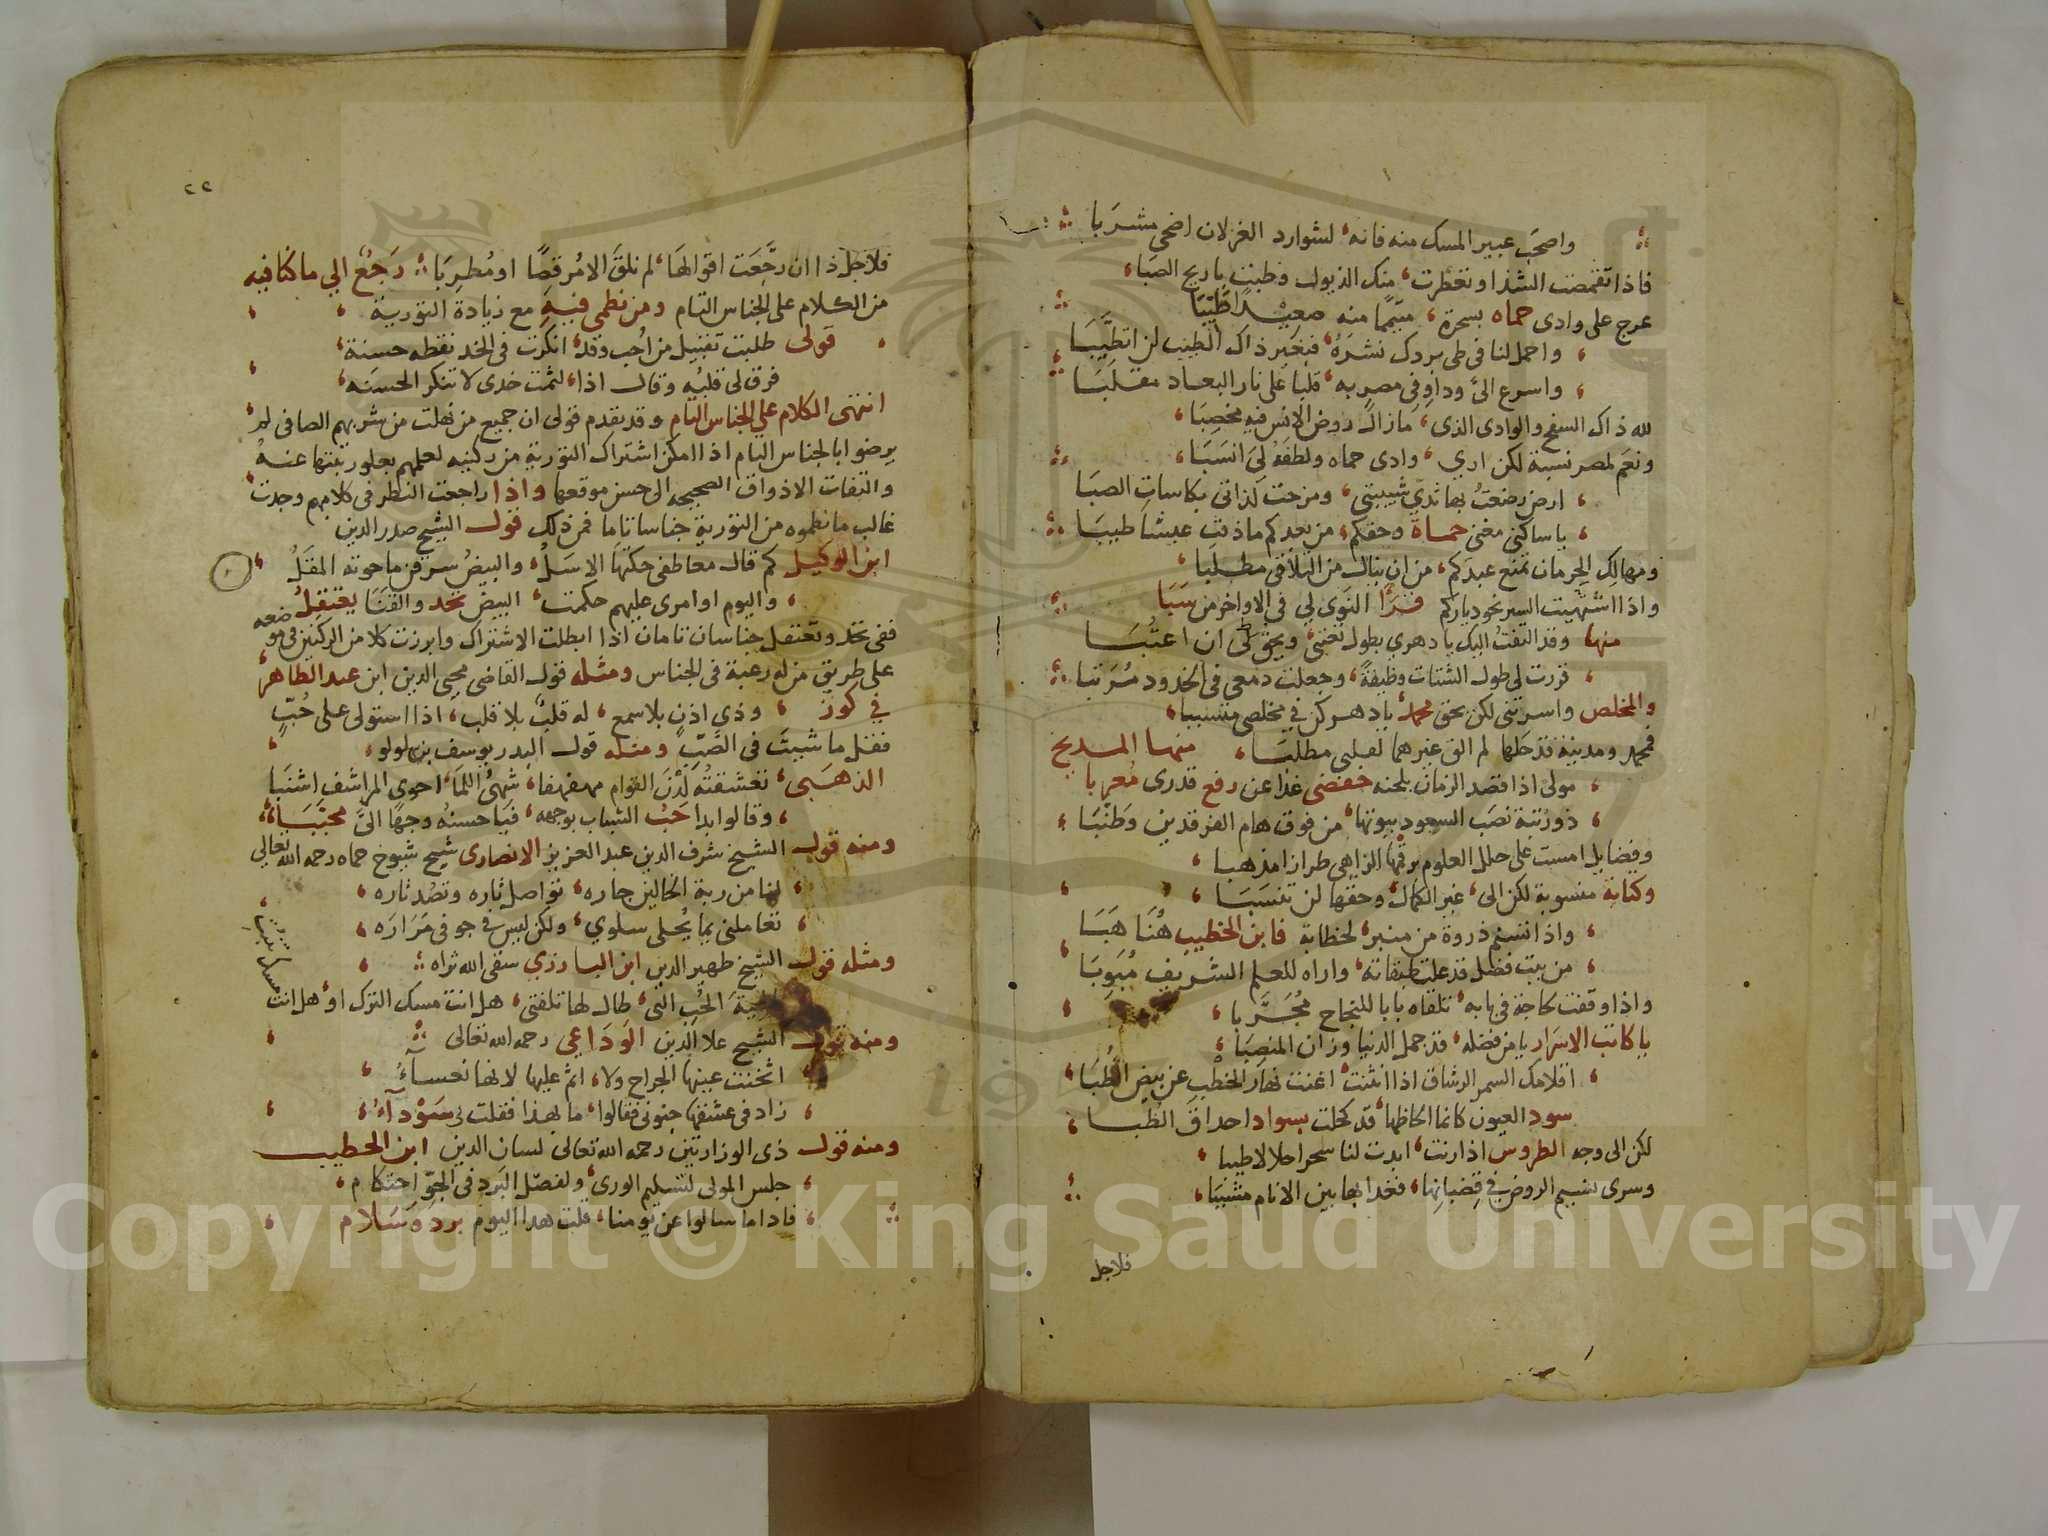 واصحب عبير المسك منه فانه لشوارد الغزلان اضحى مشربا
فاذا تقمصت الشذا وتعطرت منك الذيول وطبت ياريح الصبا
عرج على وادى حماه بسحرة متيمما منه صعيدا طيبا
واحمل لنا فى طى بردك نشره فبغير ذاك الطيب لن اتطيبا
واسرع الى وداو فى مصر به قلبا على نار البعاد مقلبا
لله ذاك السفح والوادى الذى ما زال روض الانس فيه مخصبا
ونعم لمصر نسبة لكن ارى وادى حماه ولطفه لى انسبا
ارض رضعت بها ثدى شبيبتى ومزجت لذاتى بكاسات الصبا
ياساكنى مغنى حماة وحقكم من بعدكم ما ذقت عيشا طيبا
ومهالك الحرمان تمنع عبدكم من ان ينال من التلاقى مطلبا
واذا اشتهيت السير نحو دياركم قرأ النوى لى فى الاواخر من سبا
منها وقد التفت اليك يا دهرى بطول تعتبى ويحق لى ان اعتبا
قررت لى طول الشتات وظيفة وجعلت دمعى فى الخدود مرتبا
والمخلص واسرتنى لكن بحق محمد يا دهر كن فى مخلصى متسببا
فمحمد ومدينة قد حلها لم الق غيرهما لقلبى مطلبا منها المديح
مولى اذا قصد الزمان بلحنه خفضى غدا عن رفع قدرى معربا
ذو رتبة نصب السعود بيوتها من فوق هام الفرقدين وطنبا
وفضايل امست على حلل العلوم برقمها الزاهى طرازا مذهبا
وكتابة منسوبة لكن الى غير الكمال وحقها لن تنسبا
واذا تسنم ذروة من منبر لخطابة فابن الخطيب هنا هبا
من بيت فضل قد علت طبقاته واراه للعلم الشريف مبوبا
واذا وقفت لحاجة فى بابه تلقاه بابا للنجاح مجربا
ياكاتب الاسرار يا من فضله قد جمل الدنيا وزان المنصبا
اقلامك السمر الرشاق اذا انثنت اغنت نهار الخطب عن بيض الظبا
سود العيون كانما الحاظها قد كحلت بسواد احداق الظبا
لكن الى وجه الطروس اذا رنت ابدت لنا سحرا حلالا طيبا
وسرى نسيم الروض فى قضبانها فغدا بها بين الانام مشببا
فلاجل
٢٢
فلاجل ذا ان رجعت اقوالها لم نلق الا مرقصا او مطربا رجع الى ما كنا فيه
من الكلام على الجناس التام ومن نظمى فيه مع زيادة التورية
قولى طلبت تقبيل من احب وقد انكرت فى الخد نقطه حسنة
فرق لى قلبه وقال اذا لثمت خدى لا تنكر الحسنه
انتهى الكلام على الجناس التام وقد تقدم قولى ان جميع من نهلت من شربهم الصافى لم
يرضوا بالجناس التام اذا امكن اشتراك التورية من ركنيه لعلمهم بعلو رتبتها عنه
والتفات الاذواق الصحيحه الى حسن موقعها واذا راجعت النظر فى كلامهم وجدت
غالب ما نظموه من التورية جناسا تاما فمن ذلك قول الشيخ صدر الدين
ابن الوكيل كم قال معاطفى حكتها الاسل والبيض سرقن ما حوته المقل
واليوم اوامرى عليهم حكمت البيض تحد والقنا تعتقل
ففى تحد وتعتقل جناسان تامان اذا ابطلت الاشتراك وابرزت كلا من الركنين فى موضعه
على طريق من له رغبة فى الجناس ومثله قول القاضى محيى الدين ابن عبد الظاهر
فى كوز وذى اذن بلا سمع له قلب بلا قلب اذا استولى على حب
فقل ما شيت فى الصب ومثله قول البدر يوسف بن لولو
الذهبى تعشقته لدن القوام مهفهفا شهى اللما احوى المراشف اشنبا
وقالوا بدا حب الشباب بوجهه فيا حسنه وجها الى محببا
ومنه قول الشيخ شرف الدين عبد العزيز الانصارى شيخ شيوخ حماه رحمه الله تعالى
لنا من ربة الخالين جاره تواصل تاره وتصد تاره
تعاملنى بما يحلى سلوى ولكن ليس فى جوفى مراره
ومثله قول الشيخ ظهير الدين ابن البارزى سقى الله ثراه
الحب التى طال لها تلفتى هل انت مسك الترك او هل انت
ومنه قول الشيخ علا الدين الوداعى رحمه الله تعالى
اثخنت عينها الجراح ولا اثم عليها لانها نعسآء
زاد فى عشقها جنونى فقالوا ما لهذا فقلت لى سودآء
ومنه قول ذى الوزارتين رحمه الله تعالى لسان الدين ابن الخطيب
جلس المولى لتسليم الورى ولفصل البرد فى الجو احتكام
فاذا ما سالوا عن يومنا قلت هذا اليوم برد وسلام
Copyright © King Saud University